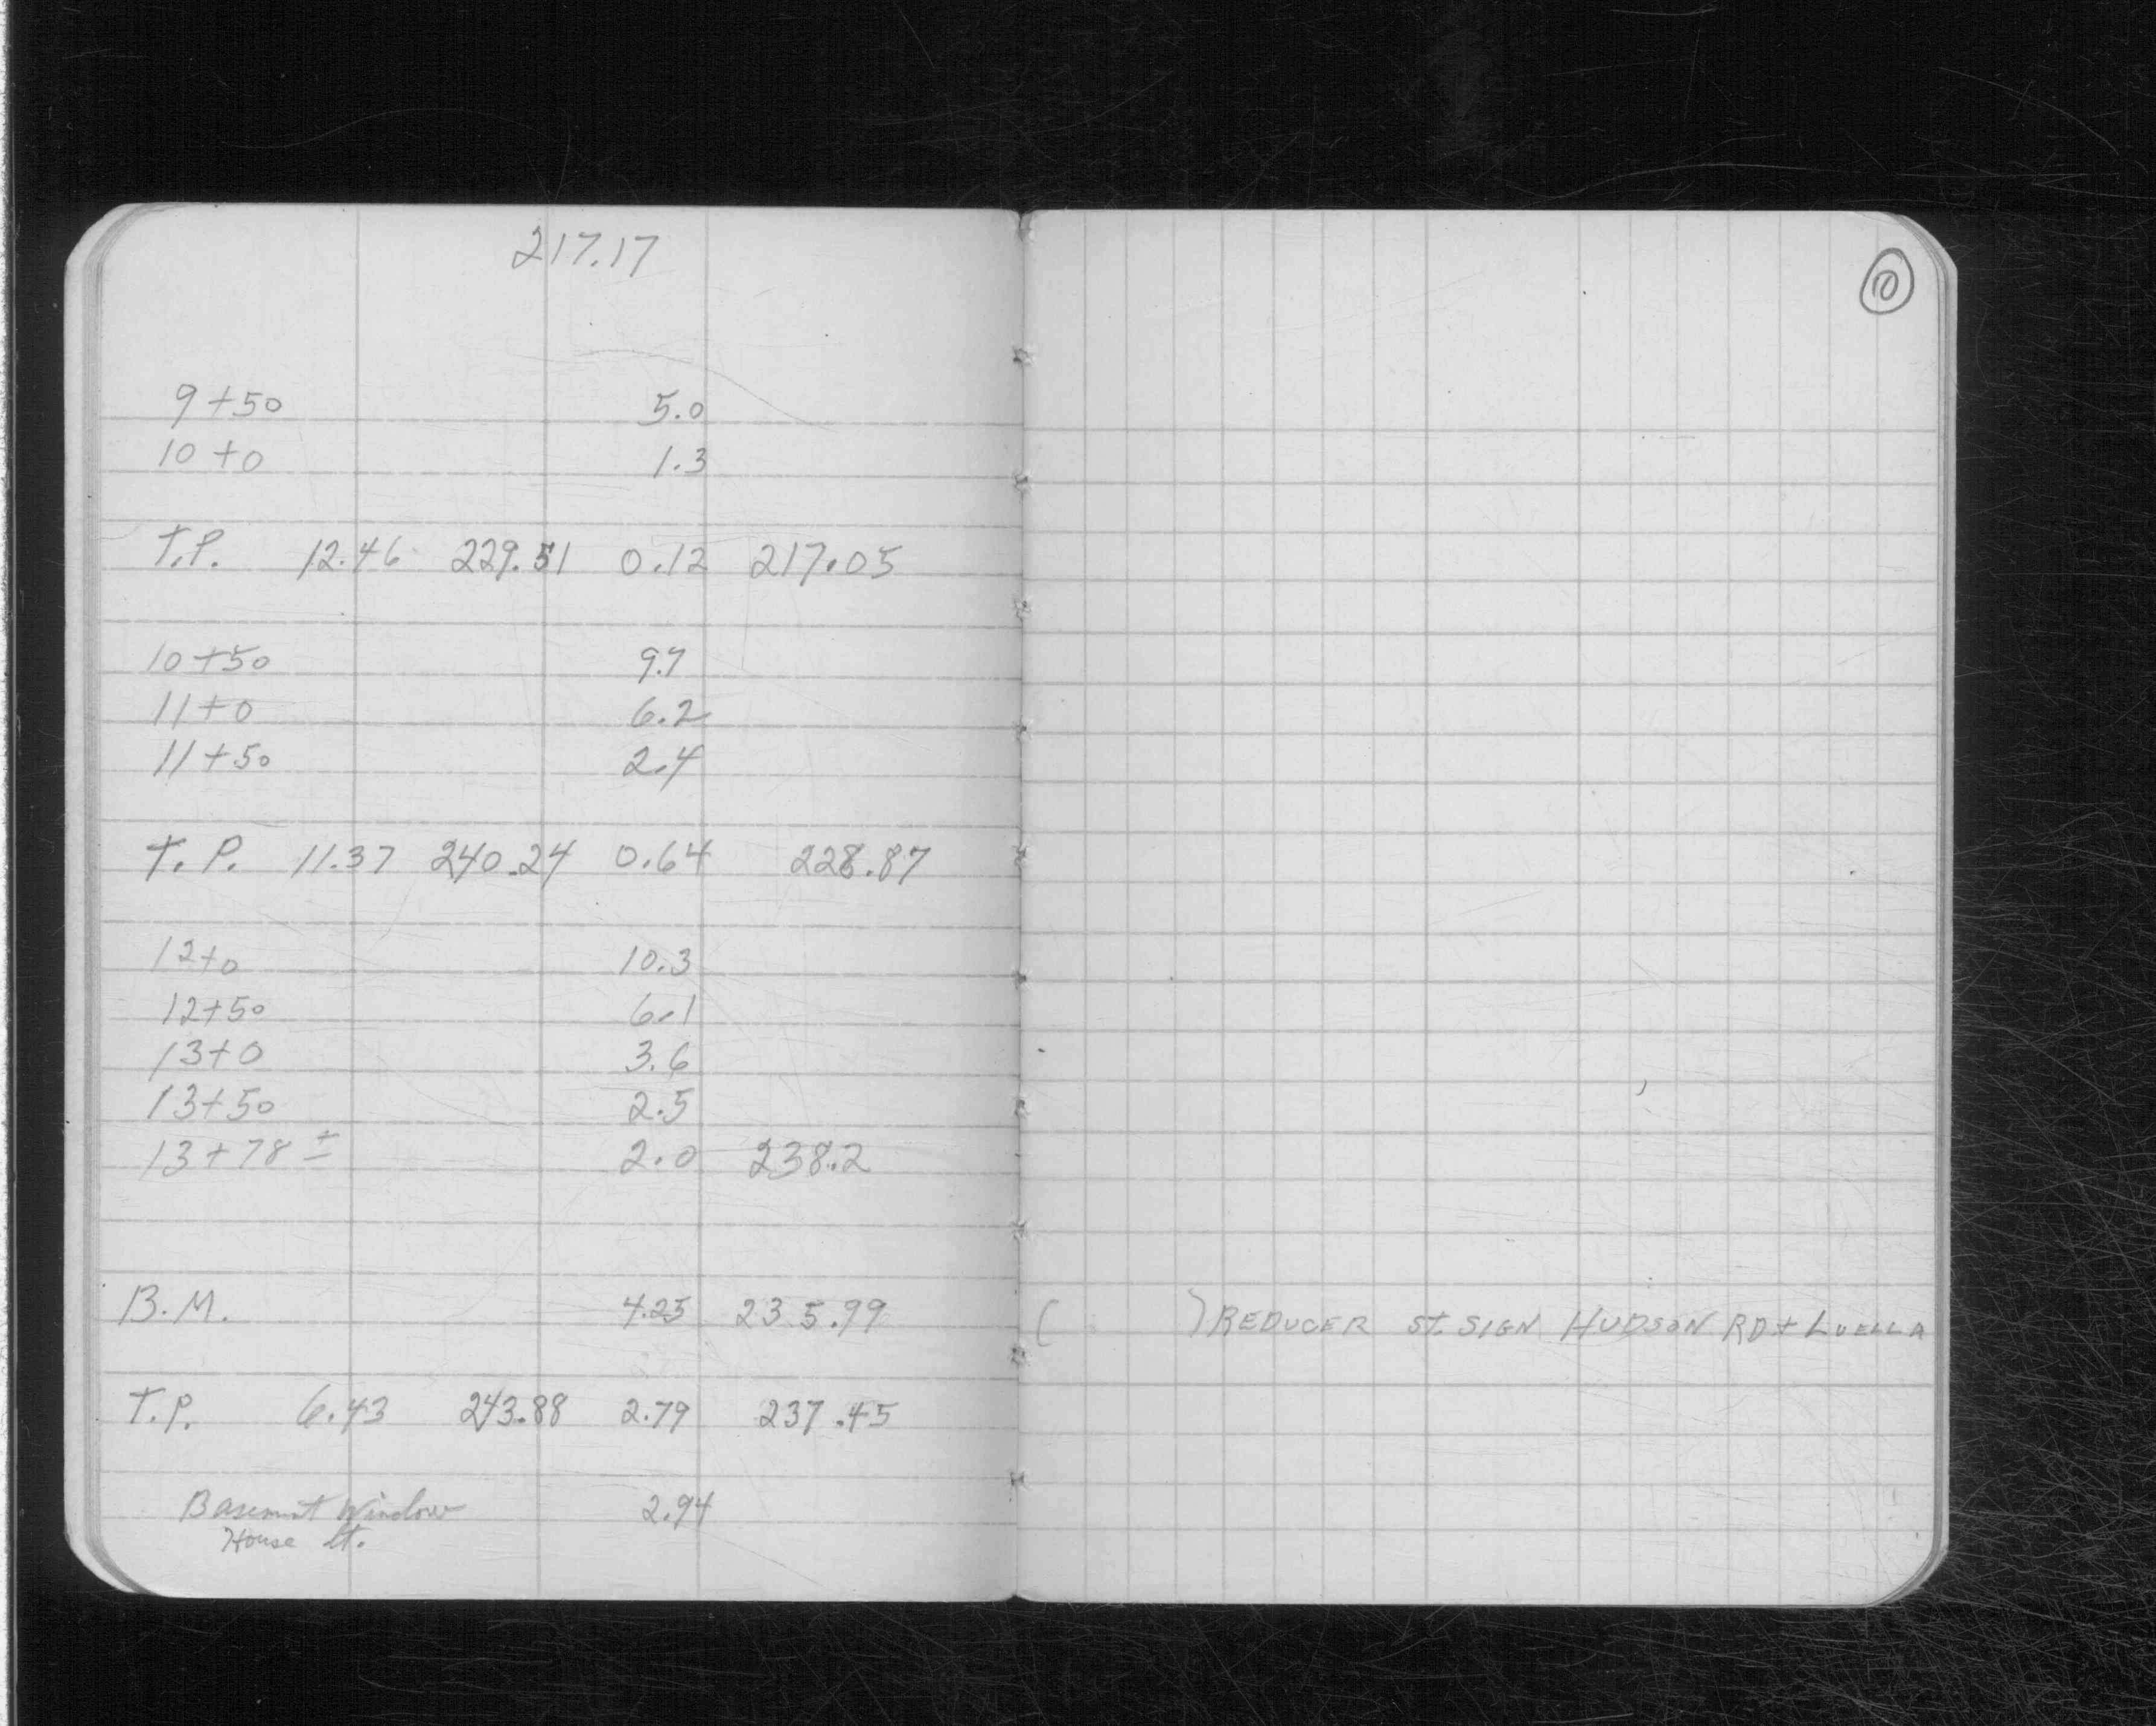 217.17
10
9+50 5.0
10+0 1.3
T.P. 12.46 229.51 0.12 217.05
10+50 9.7
11+0 6.2
11+50 2.4
T.P. 11.37 240.24 0.64 228.87
12+0 10.3
12+50 6.1
13+0 3.6
13+50 2.5
13+78 ± 2.0 238.2
B.M. 4.25 235.99 ( ) REDUCER St. SIGN HUDSON RD + LUELLA
T.P. 6.43 243.88 2.79 237.45
Basement Window 2.94
House lt.